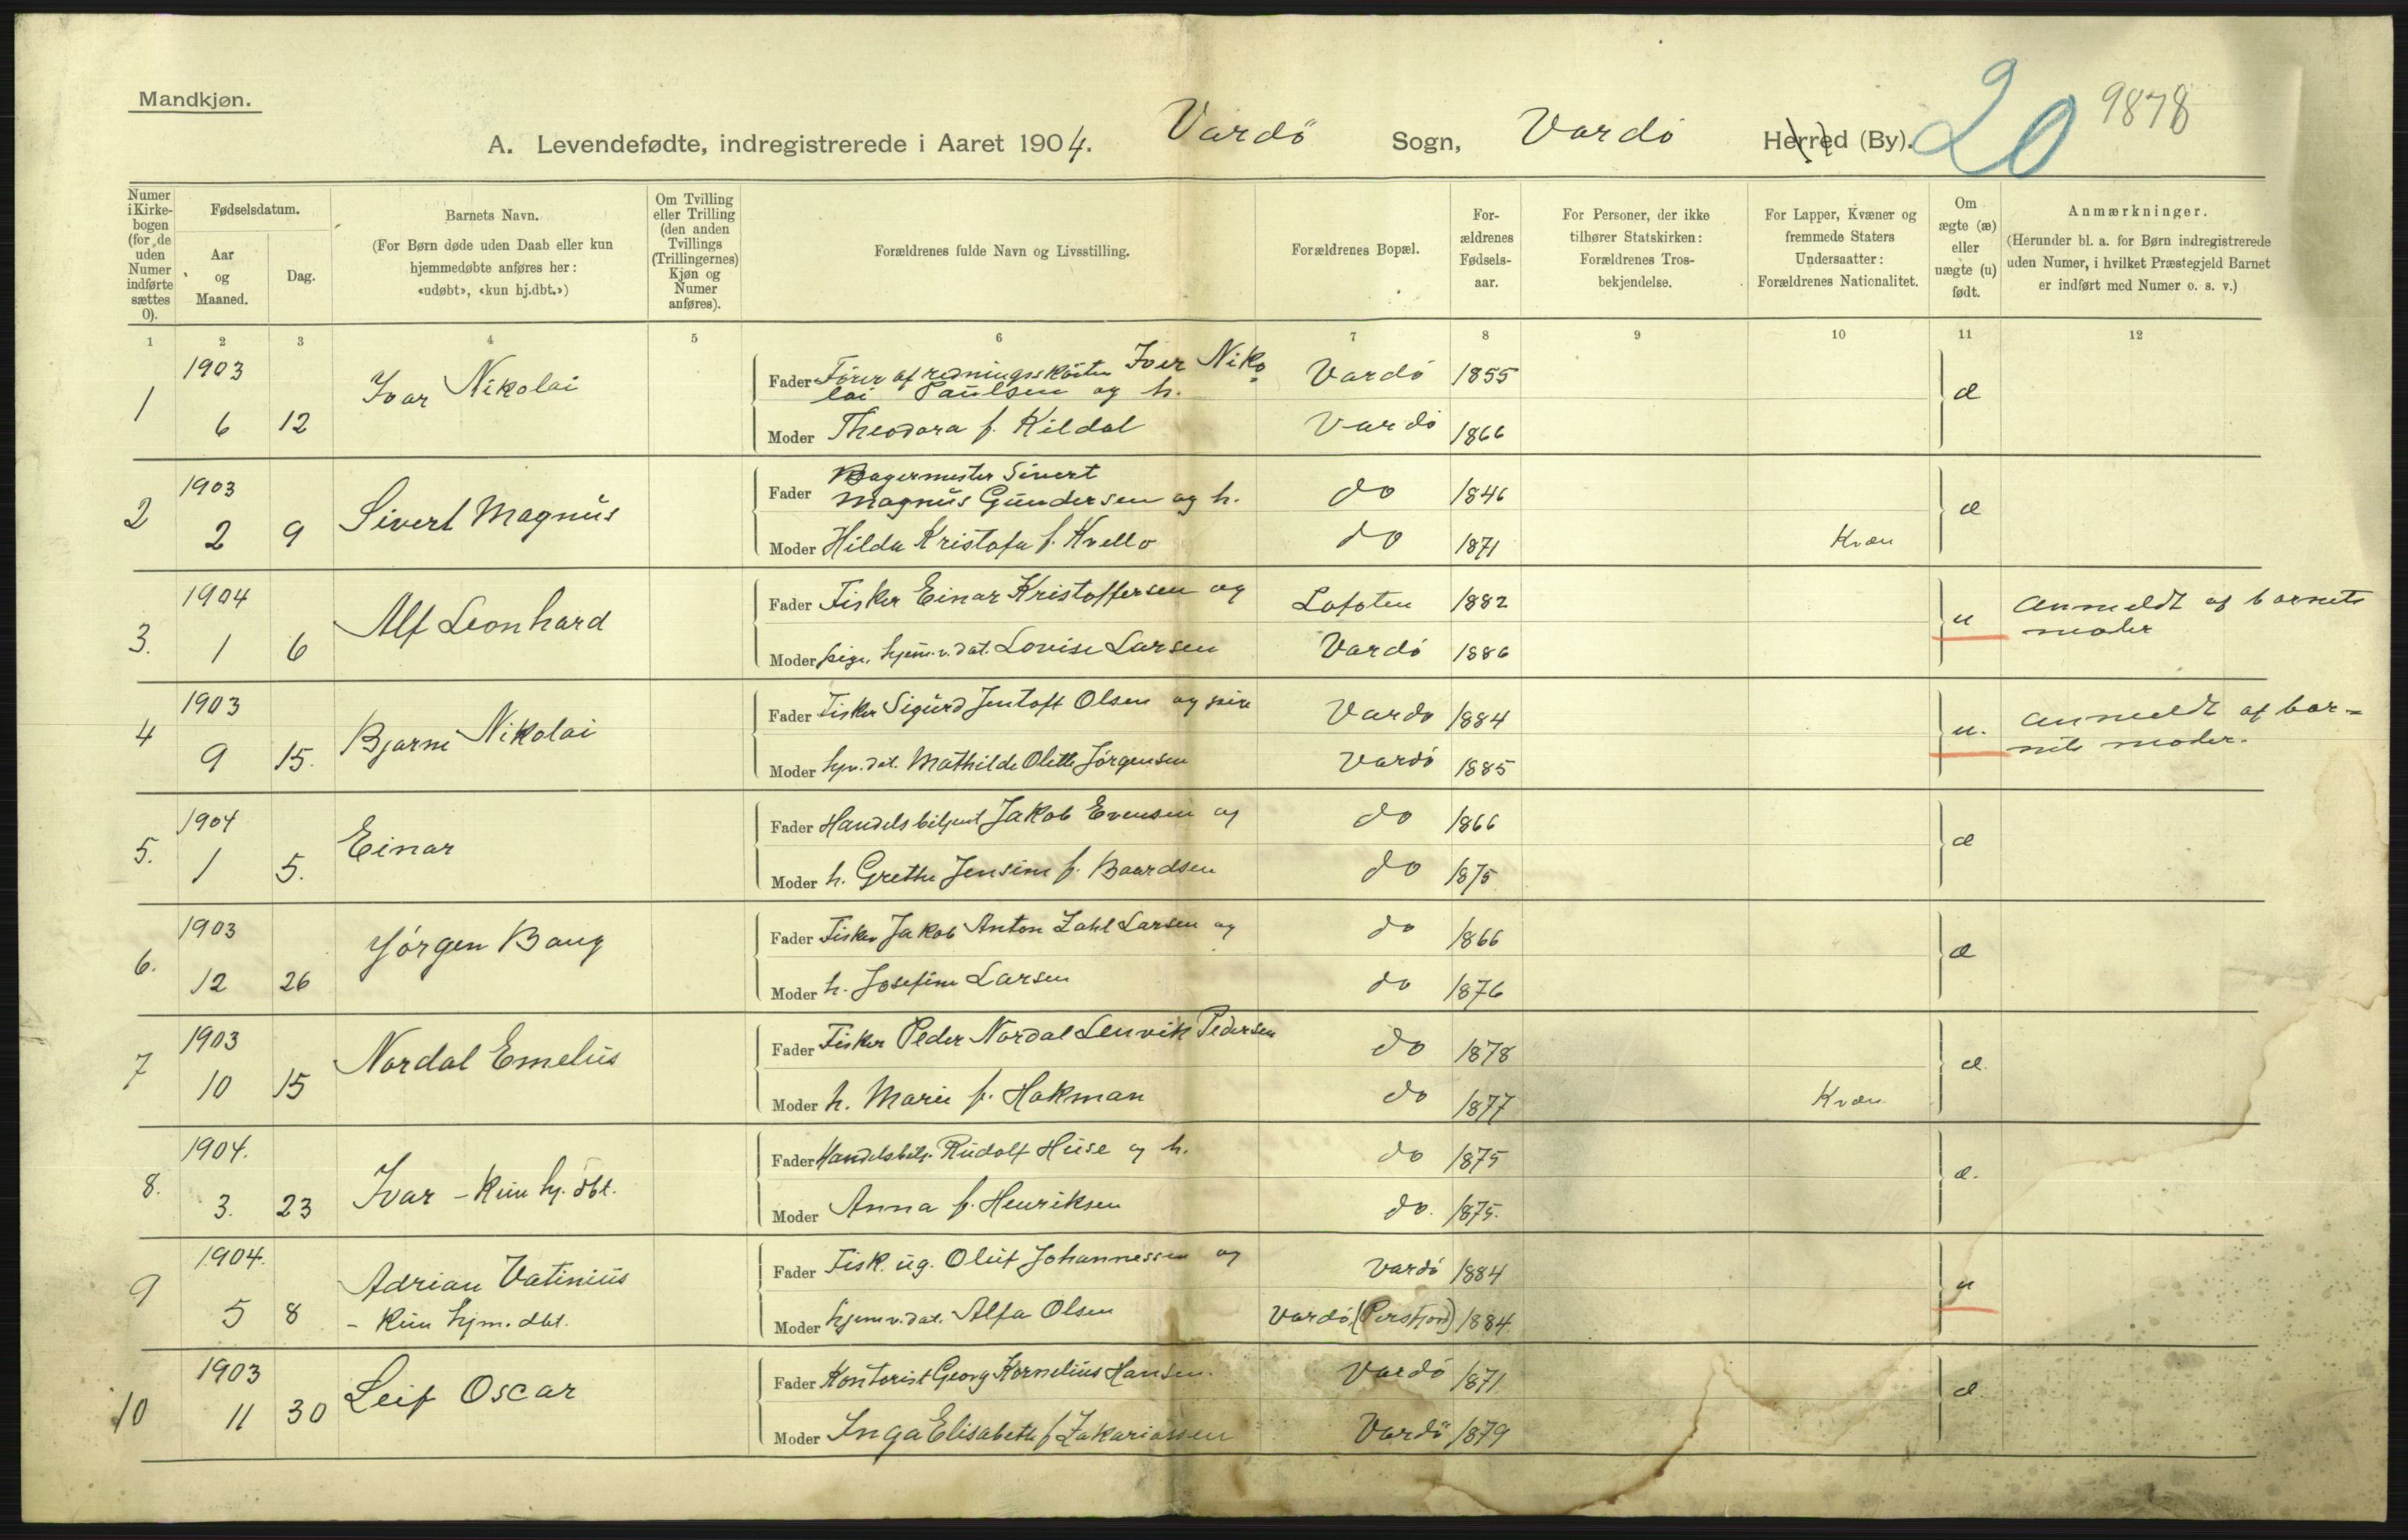 Mandkjøn.
A. Levendefødte, indregistrerede i Aaret 1904. Vardö Sogn, Vardö Herred (By). 20 9878
Numer i Kirkebogen (for de uden Numer indførte sættes 0).
Fødselsdatum.
Aar og Maaned.
Dag.
Barnets Navn.
(For Børn døde uden Daab eller kun hjemmedøbte anføres her: «udøbt», «kun hj.dbt.»)
Om Tvilling eller Trilling (den anden Tvillings (Trillingernes) Kjøn og Numer anføres).
Forældrenes fulde Navn og Livsstilling.
Forældrenes Bopæl.
Forældrenes Fødselsaar.
For Personer, der ikke tilhører Statskirken: Forældrenes Trosbekjendelse.
For Lapper, Kvæner og fremmede Staters Undersaatter: Forældrenes Nationalitet.
Om ægte (æ) eller uægte (u) født.
Anmærkninger.
(Herunder bl. a. for Børn indregistrerede uden Numer, i hvilket Præstegjeld Barnet er indført med Numer o. s. v.)
1 2 3 4 5 6 7 8 9 10 11 12
1 1903 6 12 Ivar Nikolai
Fader Förer af redningsskôiten Iver Niko=
lai Paulsen og h. Vardö 1855 æ
Moder Theodora f. Kildal Vardö 1866
2 1903 2 9 Sivert Magnus
Fader Bagermester Sivert
Magnus Gundersen og h. do 1846 æ
Moder Hilda Kristofa f. Kvello do 1871 Kvæn
3. 1904 1 6 Alf Leonhard
Fader Fisker Einar Kristoffersen og Lofoten 1882 u Anmeldt af barnets
moder
Moder pige, hjem.v.dat. Lovise Larsen Vardö 1886
4 1903 9 15. Bjarne Nikolai
Fader Fisker Sigurd Jentoft Olsen og pige Vardö 1884 u. Anmeldt af bar=
nets moder.
Moder hjv.dat. Mathilde Olette Jörgensen Vardö 1885
5. 1904 1 5. Einar
Fader Handelsbetjent Jakob Evensen og do 1866 æ
Moder h. Grethe Jensine f. Baardsen do 1875
6. 1903 12 26 Jörgen Bang
Fader Fisker Jakob Anton Zahl Larsen og do 1866 æ
Moder h. Josefine Larsen do 1876
7 1903 10 15 Nordal Emelius
Fader Fisker Peder Nordal Lenvik Pedersen do 1878 æ.
Moder h. Marie f. Hakman do 1877 Kvæn
8. 1904. 3. 23 Ivar - kun hj. dbt.
Fader Handelsbetj. Rudolf Huse og h. do 1875 æ.
Moder Anna f. Henriksen do. 1875.
9 1904. 5 8 Adrian Vatinius
- kun hjm. dbt.
Fader Fisk. ug. Oluf Johannessen og Vardö 1884 u
Moder hjemv.dat. Alfa Olsen Vardö (Persfjord) 1884
10 1903 11 30 Leif Oscar
Fader Kontorist Georg Kornelius Hansen. Vardö 1871 æ
Moder Inga Elisabeth f Zakariassen Vardö 1879